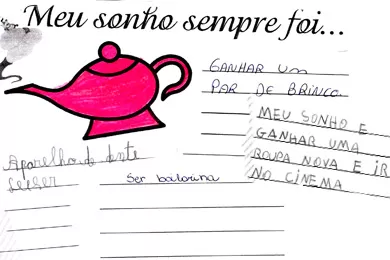 Meu sonho sempre foi...
GANHAR UM
PAR DE BRINCO
MEU SONHO E
GANHAR UMA
ROUPA NOVA E IR
NO CINEMA
Aparelho de dente
Ser bailarina